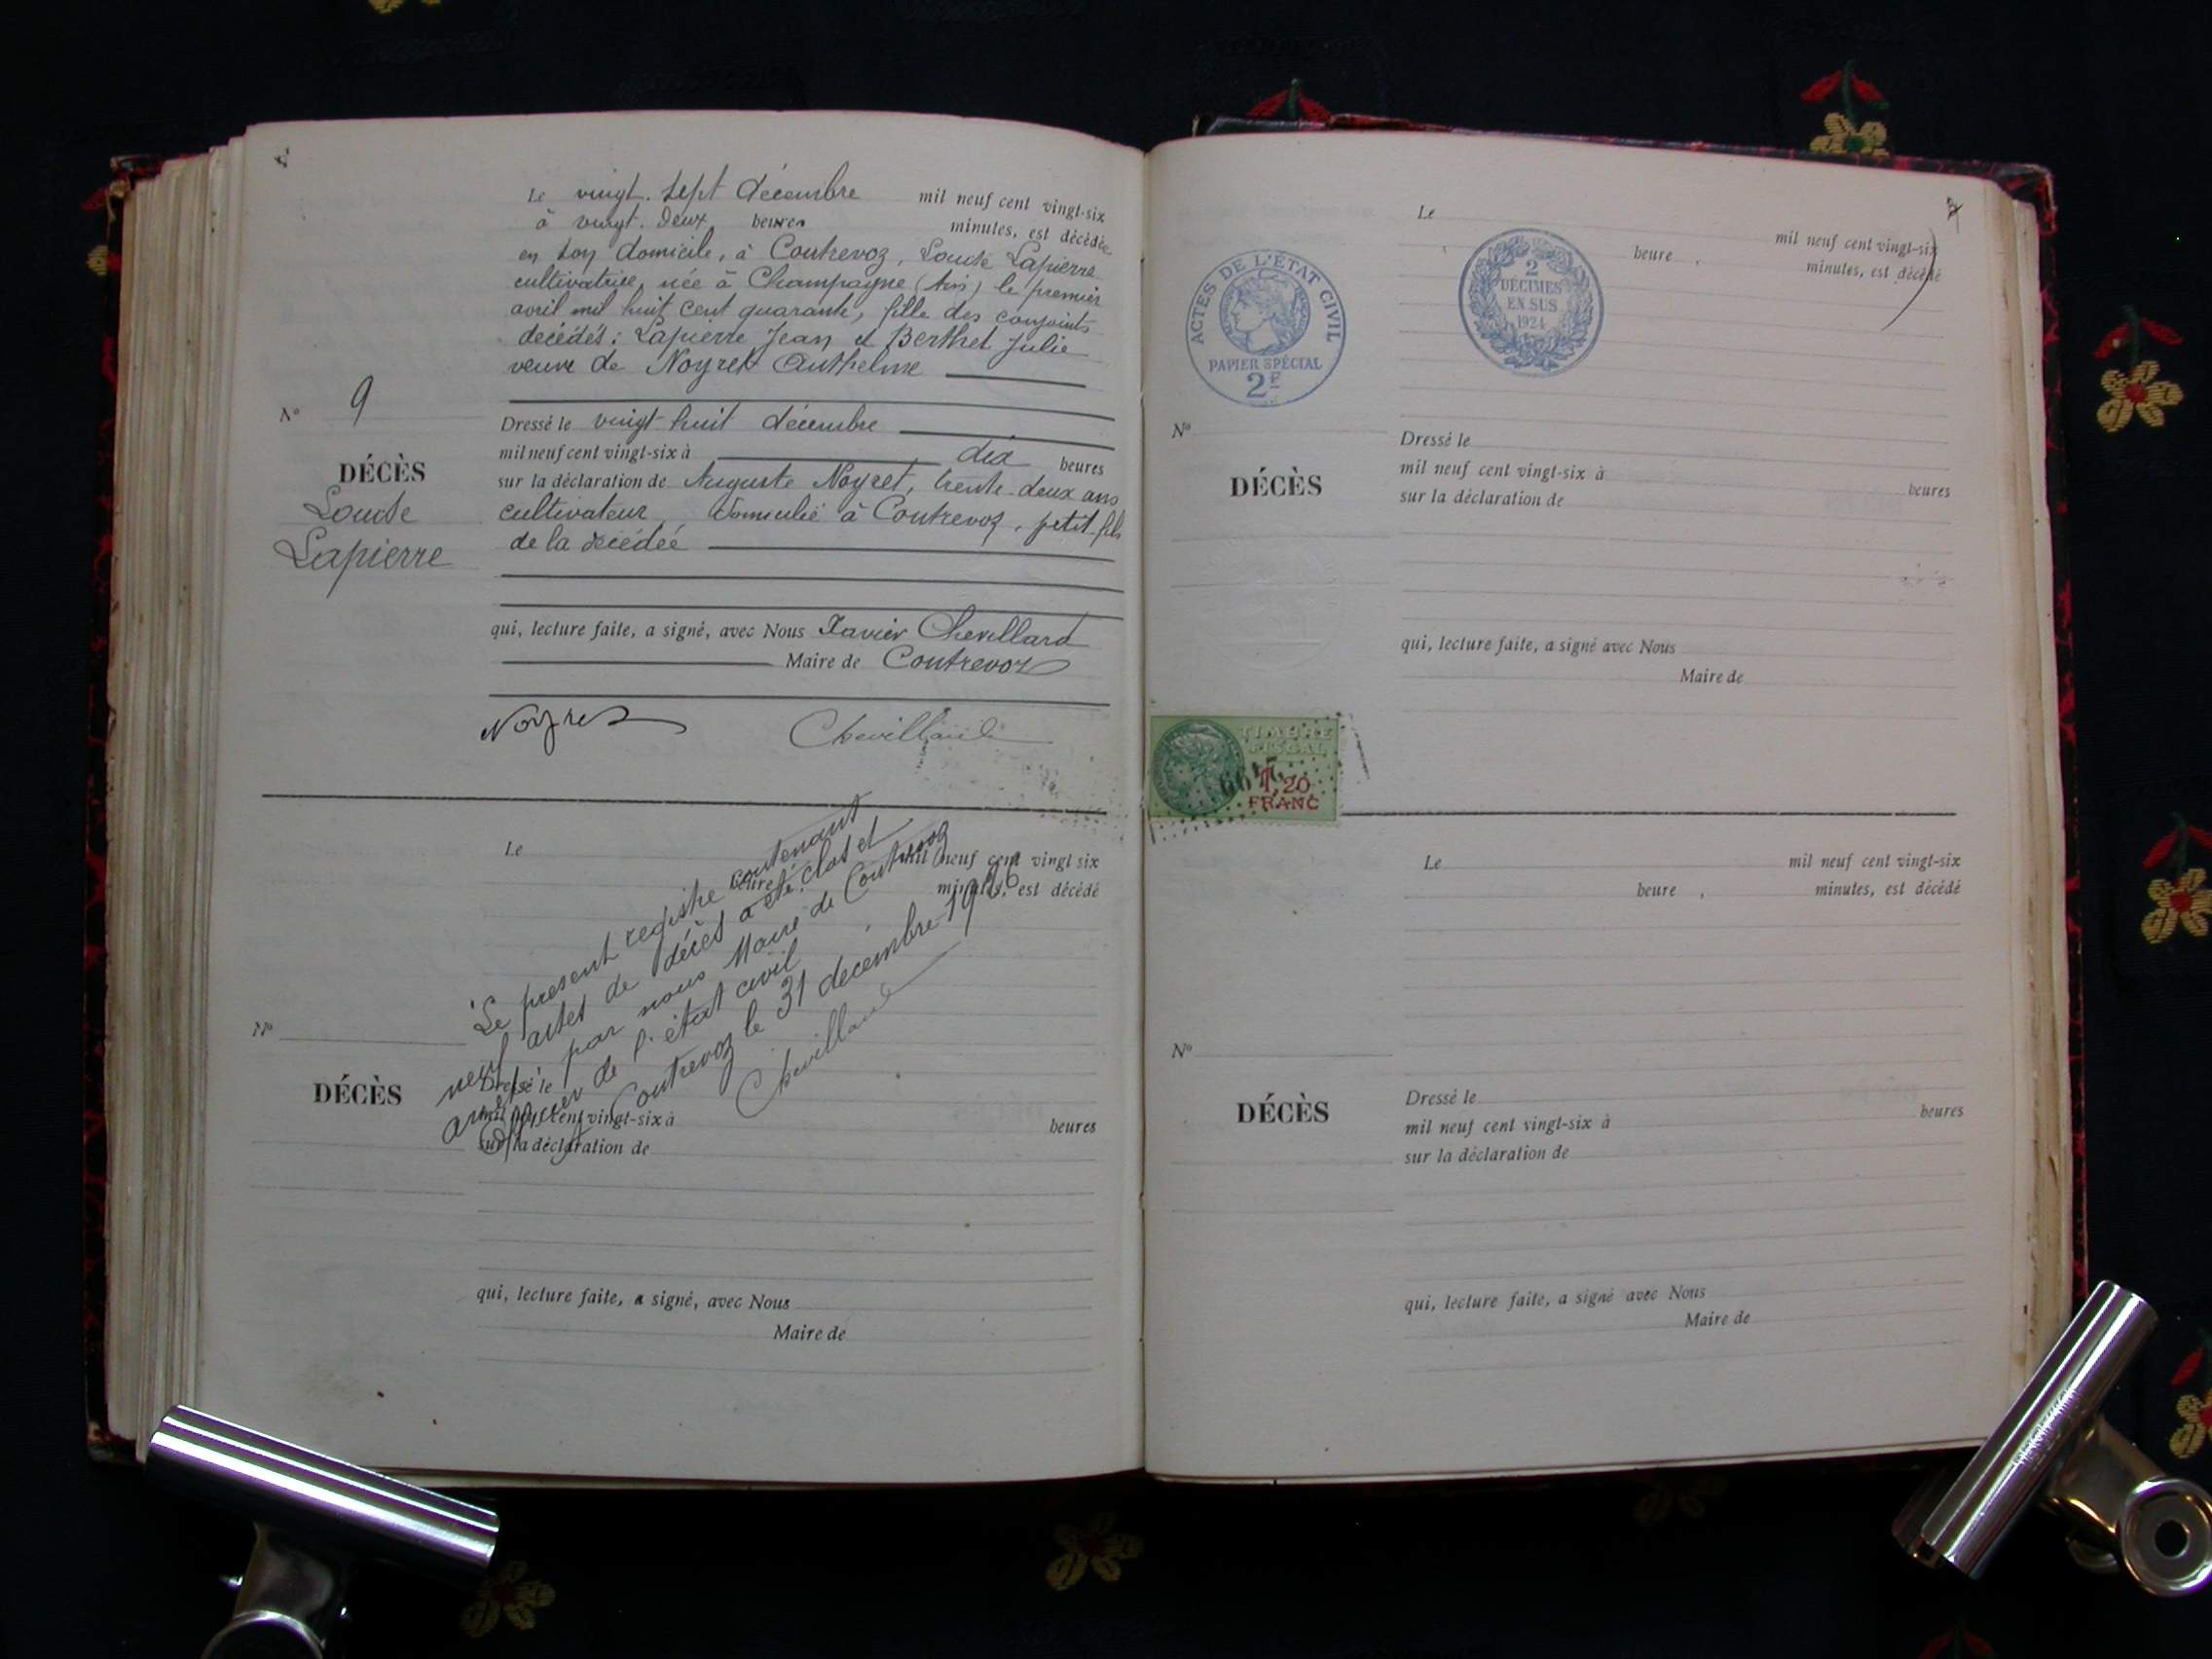 Le vingt. sept décembre mil neuf cent vingt-six
à vingt. deux heures minutes, est décédée
en son domicile, à Contrevoz, Louise Lapierre
cultivatrice, née à Champagne (Ain) le premier
avril mil huit cent quarante, fille des conjoints
décédés: Lapierre Jean et Berthet Julie
veuve de Noyret Anthelme
N° 9
DÉCÈS
Louise
Lapierre
Dressé le vingt huit décembre
mil neuf cent vingt-six à dix heures
sur la déclaration de Auguste Noyret, trente-deux ans
cultivateur, domicilié à Contrevoz, petit-fils
de la décédée
qui, lecture faite, a signé, avec Nous Xavier Chevillard
Maire de Contrevoz
Noyret Chevillard
Le mil neuf cent vingt six
heure minutes, est décédé
Le présent registre contenant
neuf actes de décès a été clos et
arrêté par nous Maire de Contrevoz
Officier de l'état civil
Contrevoz le 31 décembre 1926
Chevillard
N°
DÉCÈS
Dressé le
mil neuf cent vingt-six à heures
sur la déclaration de
qui, lecture faite, a signé, avec Nous
Maire de
Le mil neuf cent vingt-six
heure , minutes, est décédé
ACTES DE L'ÉTAT CIVIL
PAPIER SPÉCIAL
2F
2
DÉCIMES
EN SUS
1924
N°
DÉCÈS
Dressé le
mil neuf cent vingt-six à heures
sur la déclaration de
qui, lecture faite, a signé avec Nous
Maire de
TIMBRE
FISCAL
1,20
FRANC
Le mil neuf cent vingt-six
heure , minutes, est décédé
N°
DÉCÈS
Dressé le
mil neuf cent vingt-six à heures
sur la déclaration de
qui, lecture faite, a signé avec Nous
Maire de